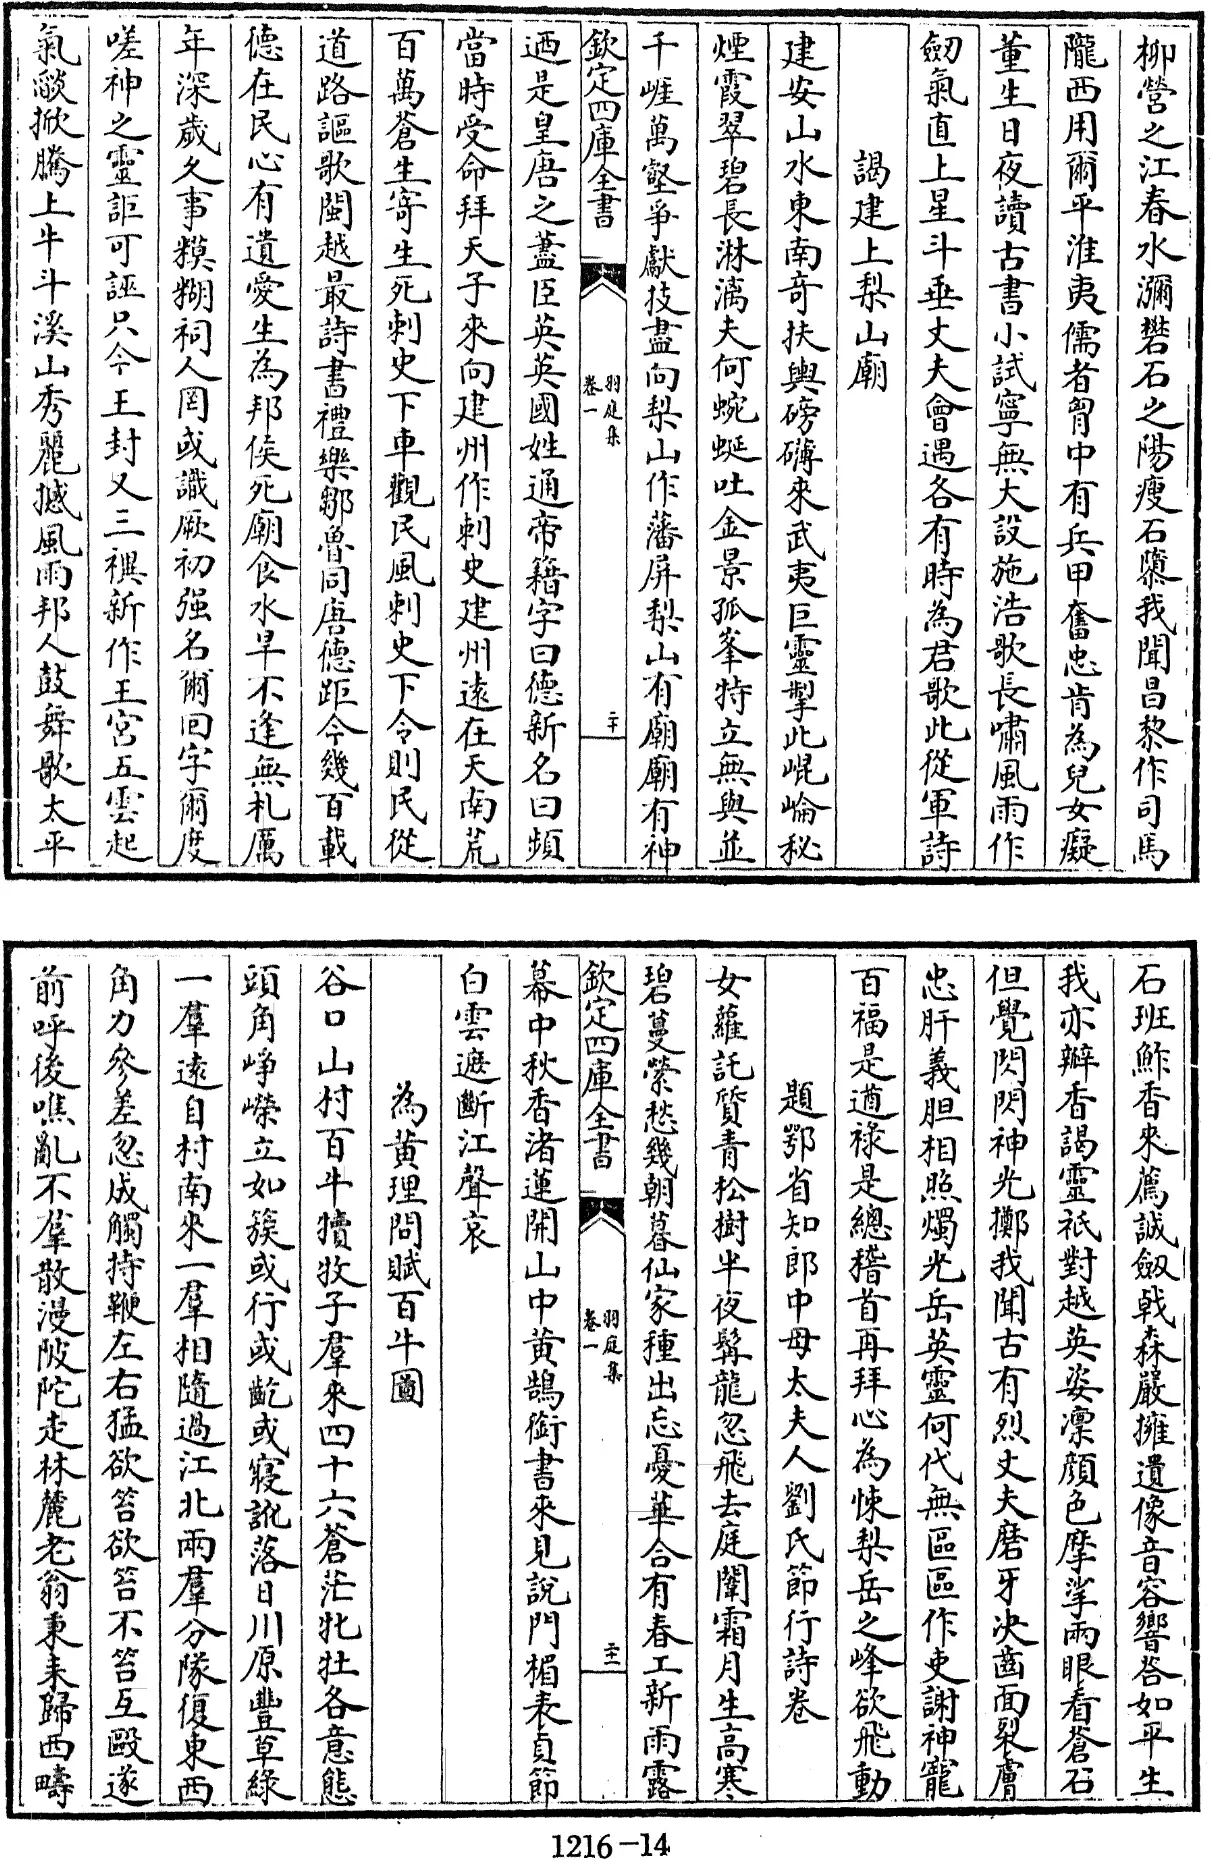 柳營之江春水瀰礬石之陽瘦石隳我聞昌黎作司馬
隴西用爾平淮夷儒者胷中有兵甲奮忠肯為兒女癡
董生日夜讀古書小試寧無大設施浩歌長嘯風雨作
劒氣直上星斗垂丈夫會遇各有時為君歌此從軍詩
謁建上梨山廟
建安山水東南竒扶輿磅礴來武夷巨靈掣此崐崘秘
煙霞翠碧長淋漓夫何蜿蜒吐金景孤峯特立無與並
千崖萬壑爭獻技盡向梨山作藩屏梨山有廟廟有神
欽定四庫全書
羽庭集
卷一
二十
迺是皇唐之藎臣英英國姓通帝籍字曰德新名曰頻
當時受命拜天子來向建州作刺史建州逺在天南荒
百萬蒼生寄生死刺史下車觀民風刺史下令則民從
道路謳歌閩越最詩書禮樂鄒魯同唐德距今幾百載
德在民心有遺愛生為邦侯死廟食水旱不逢無札厲
年深歲久事糢糊祠人罔或識厥初强名爾曰字爾度
嗟神之靈詎可誣只今王封又三禩新作王宮五雲起
氣燄掀騰上牛斗溪山秀麗撼風雨邦人鼓舞歌太平
石班鮓香來薦誠劔㦸森嚴擁遺像音容響答如平生
我亦辦香謁靈祇對越英姿凛顔色摩挲兩眼看蒼石
但覺閃閃神光擲我聞古有烈丈夫磨牙决齒面裂膚
忠肝義胆相照燭光岳英靈何代無區區作吏謝神寵
百福是遒祿是總稽首再拜心為悚梨岳之峰欲飛動
題鄂省知郎中母太夫人劉氏節行詩卷
女蘿託質青松樹半夜髯龍忽飛去庭闈霜月生高寒
碧蔓縈愁幾朝暮仙家種出忘憂華合有春工新雨露
欽定四庫全書
羽庭集
卷一
二十一
幕中秋香渚蓮開山中黄鵠銜書來見說門楣表貞節
白雲遮斷江聲哀
為黄理問賦百牛圖
谷口山村百牛犢牧子羣來四十六蒼茫牝牡各意態
頭角崢嶸立如簇或行或齕或寢訛落日川原豐草緑
一羣逺自村南來一羣相隨過江北兩羣分隊復東西
角力參差忽成觸持鞭左右猛欲笞欲笞不笞互毆遂
前呼後噍亂不羣散漫陂陀走林麓老翁秉耒歸西疇
1216-14